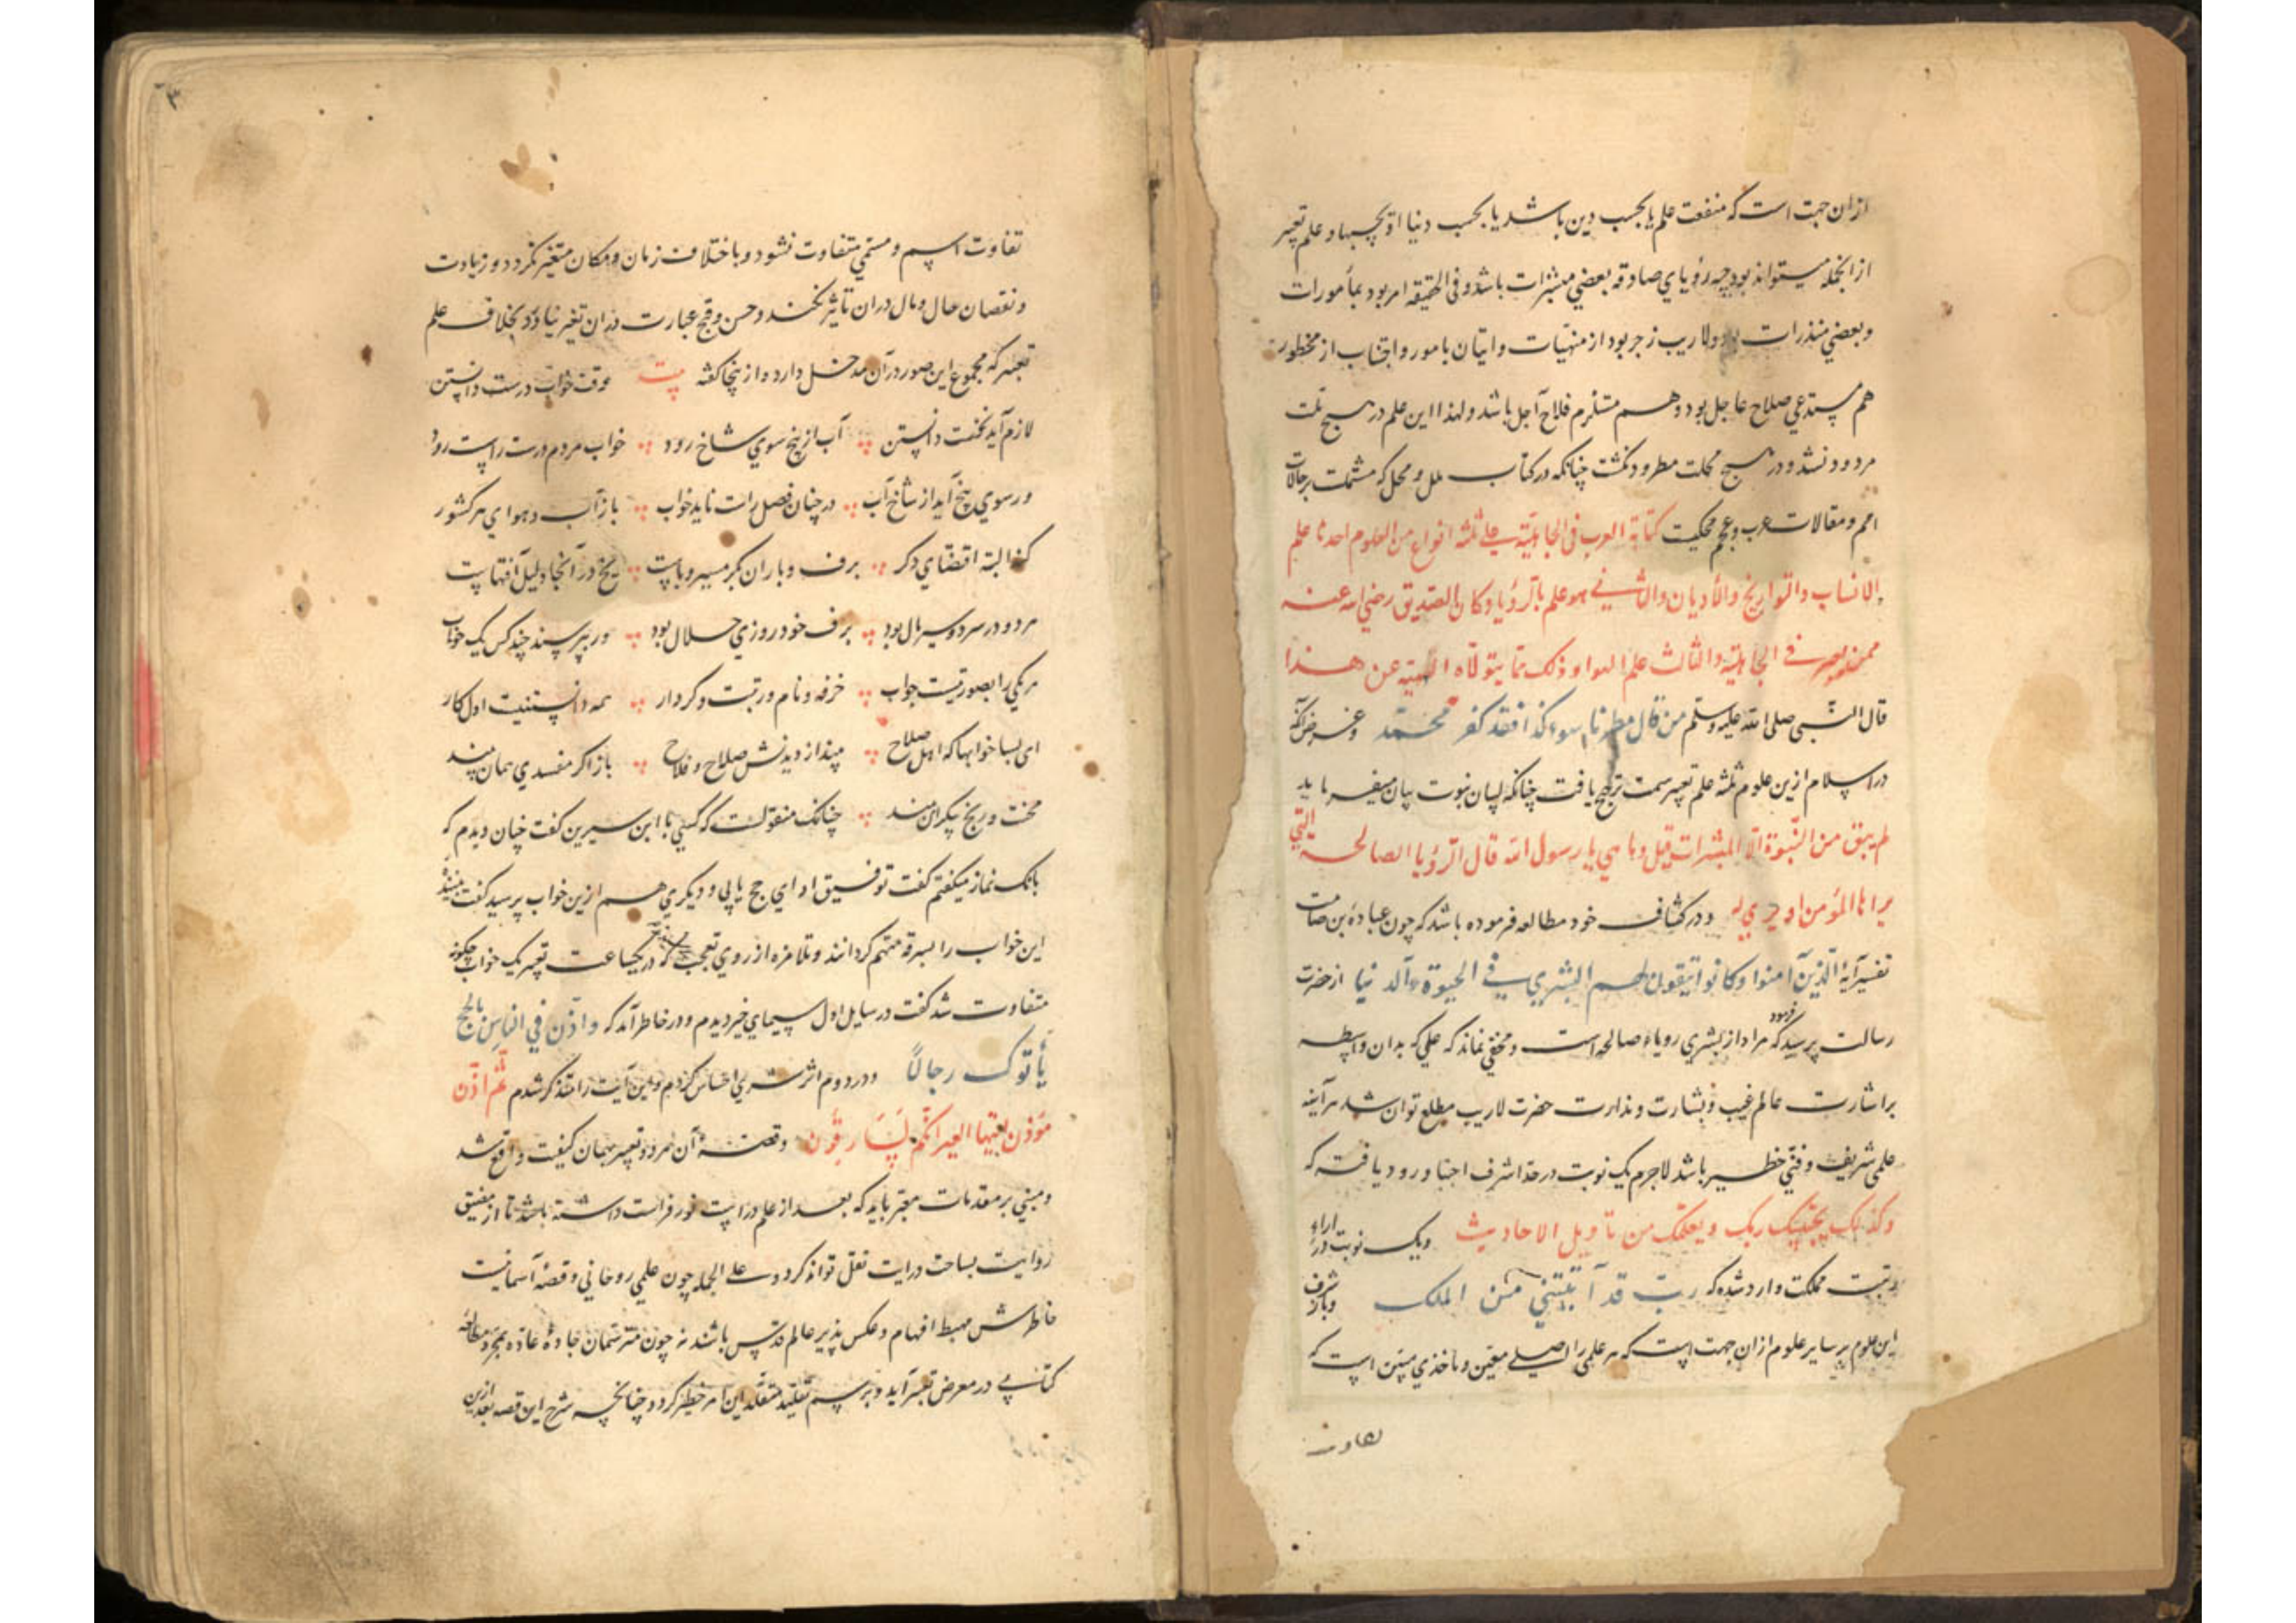 ازان جهت است که منفعت علم یا بحسب دین باشد یا بحسب دنیا او بحسبهما و علم تعبیر
ازانجمله میتواند بود چه رؤیای صادقه بعضی مبشرات باشد و فی الحقیقه امر بود بمأمورات
و بعضی منذرات بود ولاریب زجر بود از منهیات و اتیان بامور و اجتناب از محظور
هم مستدعی صلاح عاجل بود و هم مستلزم فلاح آجل باشد و لهذا این علم در هیچ ملت
مردود نشد و در هیچ محلت مطرود نگشت چنانکه در کتاب ملل و نحل که مشتملست بر حالات
امم و مقالات عرب و عجم محکیست کتابة العرب فی الجاهلیة علی ثلثة انواع من العلوم احدها علم
الانساب والتواریخ والأدیان والثانی هو علم بالرؤیا و کان الصدیق رضی الله عنه
ممن یعبر فی الجاهلیة والثالث علم الانواء و ذلک مما یتولاه الکهنة عن هذا
قال النبی صلی الله علیه وسلم من قال مطرنا بنوء کذا فقد کفر بمحمد
در اسلام ازین علوم ثلثه علم تعبیر سمت ترجیح یافت چنانکه لسان نبوت بیان میفرماید
لم یبق من النبوة الا المبشرات قیل وما هی یا رسول الله قال الرؤیا الصالحة التی
یراها المؤمن او یری له و در کشاف خود مطالعه فرموده باشد که چون عبادة بن صامت
تفسیر آیة الذین آمنوا وکانوا یتقون لهم البشری فی الحیوة الدنیا از حضرت
رسالت پرسید فرمود که مراد از بشری رویاء صالحه است و مخفی نماند که علمی که بدان واسطه
بر اشارت عالم غیب و بشارت و نذارت حضرت لاریب مطلع توان شد هر آینه
علمی شریف و فنی خطیر باشد لاجرم یک نوبت در حد اشرف اجتبا ورود یافته که
وکذلک یجتبیک ربک ویعلمک من تأویل الاحادیث و یک نوبت در ازاء
رتبت مملکت وارد شده که رب قد آتیتنی من الملک و باز شرف
این علوم بر سایر علوم ازان جهت است که هر علمی را اصلی معین و مأخذی مبین است که
تفاوت
۳
تفاوت اسم و مسمی متفاوت نشود و باختلاف زمان و مکان متغیر نگردد و زیادت
و نقصان حال و مال دران تاثیر نکند و حسن و قبح عبارت دران تغیر نیاورد بخلاف علم
تعبیر که مجموع این صور درآن مدخل دارد و ازینجا گفته بیت وقت خواب درست دانستن
لازم آید نخست دانستن آب از بیخ سوی شاخ رود خواب مردم درست راست رود
ور سوی بیخ آید از شاخ آب در چنان فصل راست ناید خواب باز آب و هوای هر کشور
کند البته اقتضای دگر برف و باران بگرمسیر وباست یخ در آنجا دلیل آفتهاست
مرد در سردسیر مال بود برف خود روزی حلال بود ور بپرسند چند کس یک خواب
هر یکی را بصورتیست جواب حرفه و نام و رتبت و کردار همه دانستنیست اول کار
ای بسا خوابها که اهل صلاح بیند از دیدنش صلاح و فلاح باز اگر مفسدی همان بیند
محنت و رنج بیکران بیند چنانک منقولست که کسی با ابن سیرین گفت چنان دیدم که
بانک نماز میکفتم گفت توفیق ادای حج یابی و دیگری هم ازین خواب پرسید گفت بیننده
این خواب را بسرقه متهم گردانند و تلامذه از روی تعجب که در یکساعت تعبیر یک خواب چگونه
متفاوت شد گفت در سایل اول سیمای خیر دیدم و در خاطر آمد که واذن فی الناس بالحج
یأتوک رجالاً و در دوم اثر شری احساس کردم و این آیت را متذکر شدم ثم اذن
مؤذن ایتها العیر انکم لسارقون و قصه آن هر دو تعبیر بهمان کیفیت واقع شد
و مبنی بر مقدمات معبر باید که بعد از علم دراست نور فراست داشته باشد تا از مضیق
روایت بساحت درایت نقل تواند کرد و علی الجمله چون علمی روحانی و قصه آسمانیست
خاطرش مهبط افهام و عکس پذیر عالم قدس باشد نه چون مترسمان جاده عاده بمجرد مطالعه
کتابی در معرض تعبیر آید و برسم تقلید متقلد این امر خطیر گردد چنانچه شرح این قصه بعد ازین